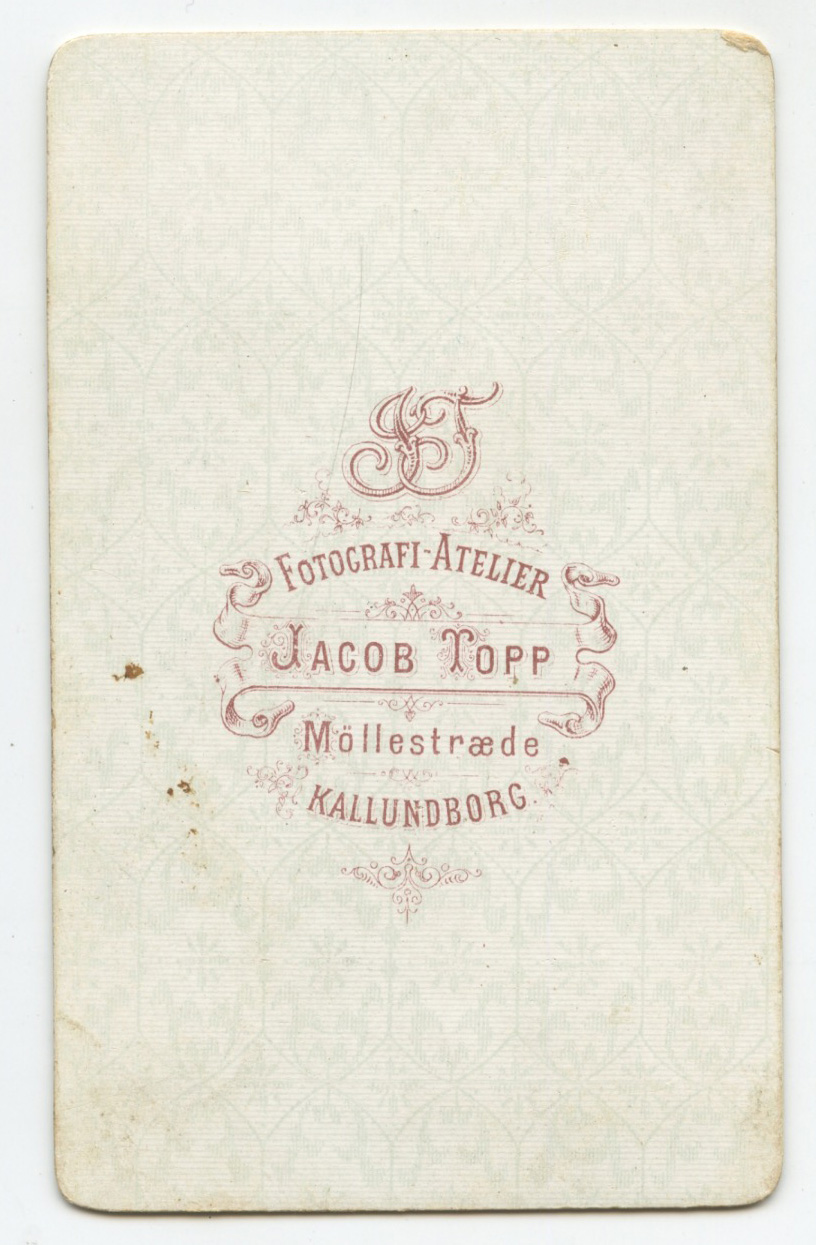 JT
FOTOGRAFI-ATELIER
JACOB TOPP
Möllestræde
KALLUNDBORG.